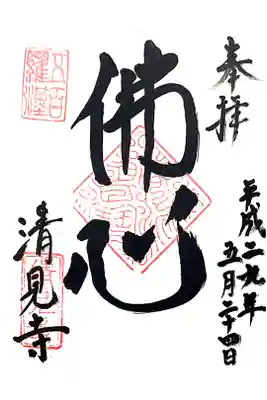 奉拝
平成二九年
五月二十四日
佛心
五百
羅漢
清見寺